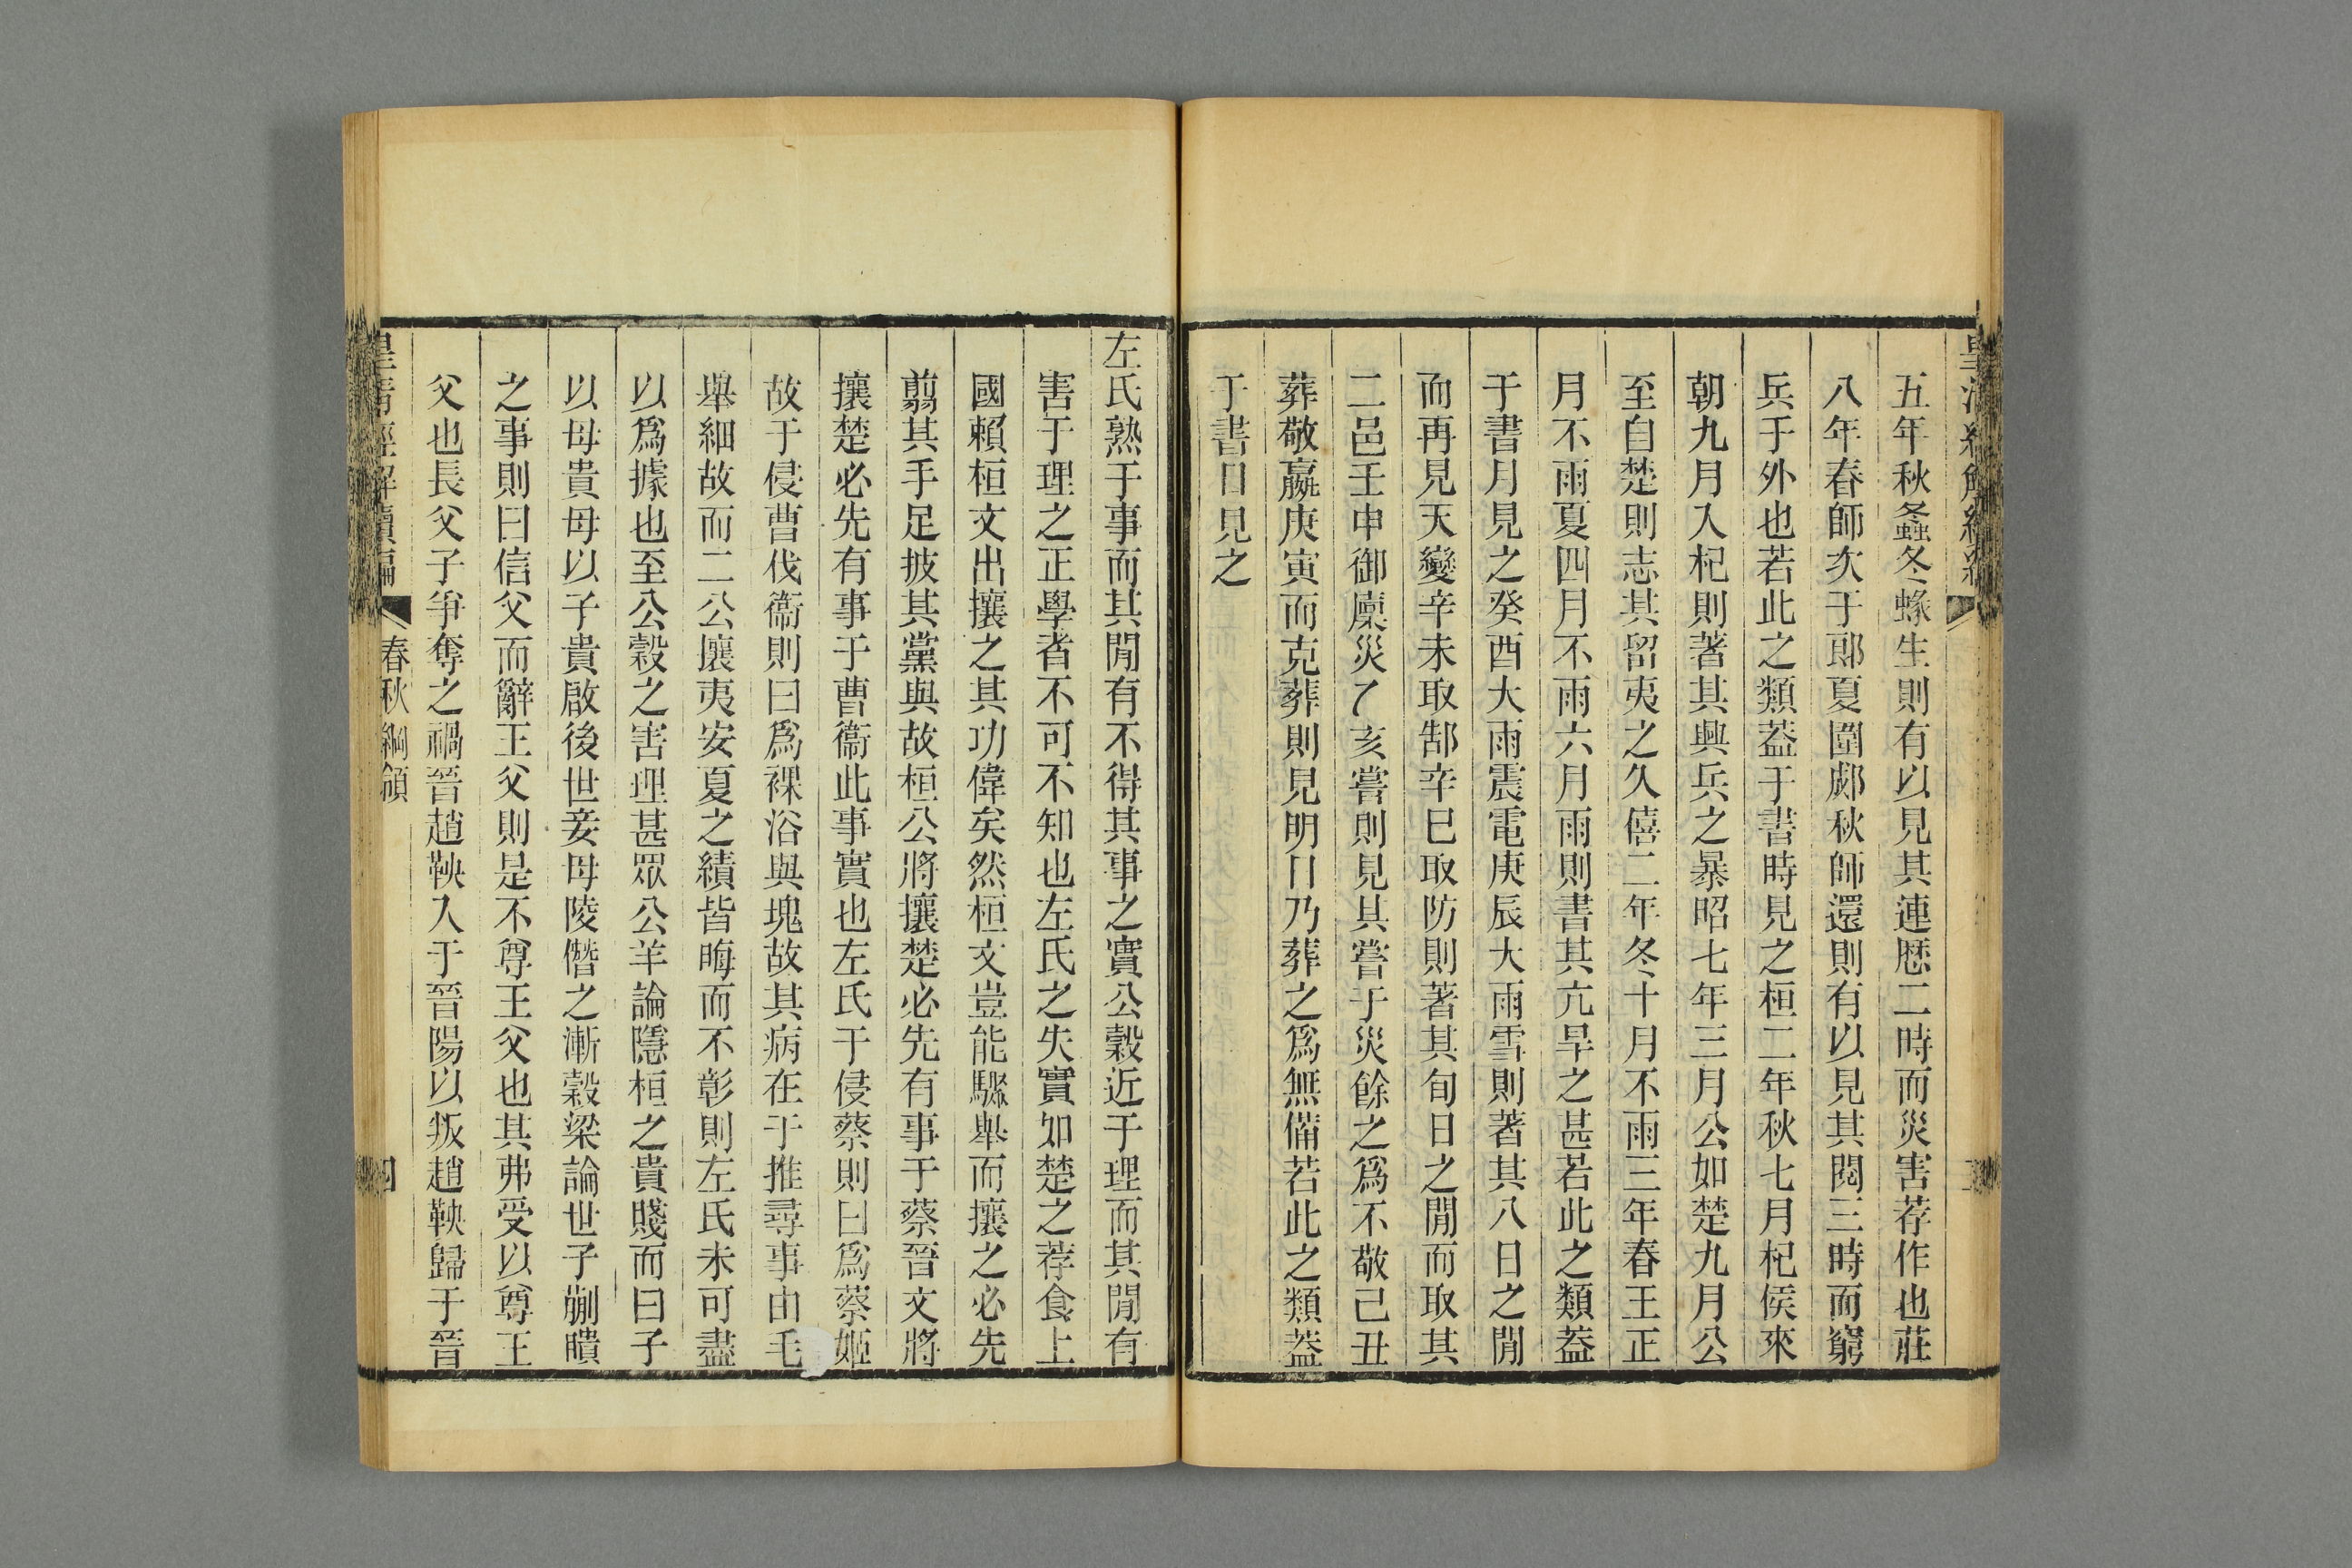 五年秋螽冬蝝生則有以見其連歷二時而災害荐作也莊
八年春師次于郎夏圍郕秋師還則有以見其閱三時而窮
兵于外也若此之類葢于書時見之桓二年秋七月杞侯來
朝九月入杞則著其興兵之暴昭七年三月公如楚九月公
至自楚則志其留夷之久僖二年冬十月不雨三年春王正
月不雨夏四月不雨六月雨則書其亢旱之甚若此之類葢
于書月見之癸酉大雨震電庚辰大雨雪則著其八日之閒
而再見天變辛未取郜辛巳取防則著其旬日之閒而取其
二邑壬申御廩災乙亥嘗則見其嘗于災餘之爲不敬己丑
葬敬嬴庚寅而克葬則見明日乃葬之爲無備若此之類葢
于書日見之
左氏熟于事而其閒有不得其事之實公穀近于理而其閒有
害于理之正學者不可不知也左氏之失實如楚之荐食上
國賴桓文出攘之其功偉矣然桓文豈能驟舉而攘之必先
翦其手足披其黨與故桓公將攘楚必先有事于蔡晉文將
攘楚必先有事于曹衞此事實也左氏于侵蔡則曰爲蔡姬
故于侵曹伐衞則曰爲裸浴與塊故其病在于推尋事由毛
舉細故而二公攘夷安夏之績皆晦而不彰則左氏未可盡
以爲據也至公穀之害理甚眾公羊論隱桓之貴賤而曰子
以母貴母以子貴啟後世妾母陵僭之漸穀梁論世子蒯聵
之事則曰信父而辭王父則是不尊王父也其弗受以尊王
父也長父子爭奪之禍晉趙鞅入于晉陽以叛趙鞅歸于晉
皇清經解續編 春秋綱領 四